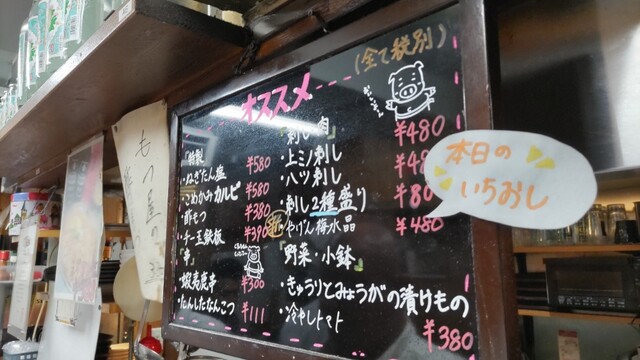 オススメ
(全て税別)
「特製」
・ねぎたん塩 ¥580
・こめかみカルビ ¥580
・酢もつ ¥380
・チー玉鉄板 ¥390
「串」
・蝦夷鹿串 ¥300
・たんしたなんこつ ¥111
「刺し肉」
・上ミノ刺し ¥480
・ハツ刺し ¥48
・刺し2種盛り ¥80
・やげん梅水晶 ¥480
「野菜・小鉢」
・きゅうりとみょうがの漬けもの
・冷やしトマト ¥380
本日の
いちおし
もつ屋の